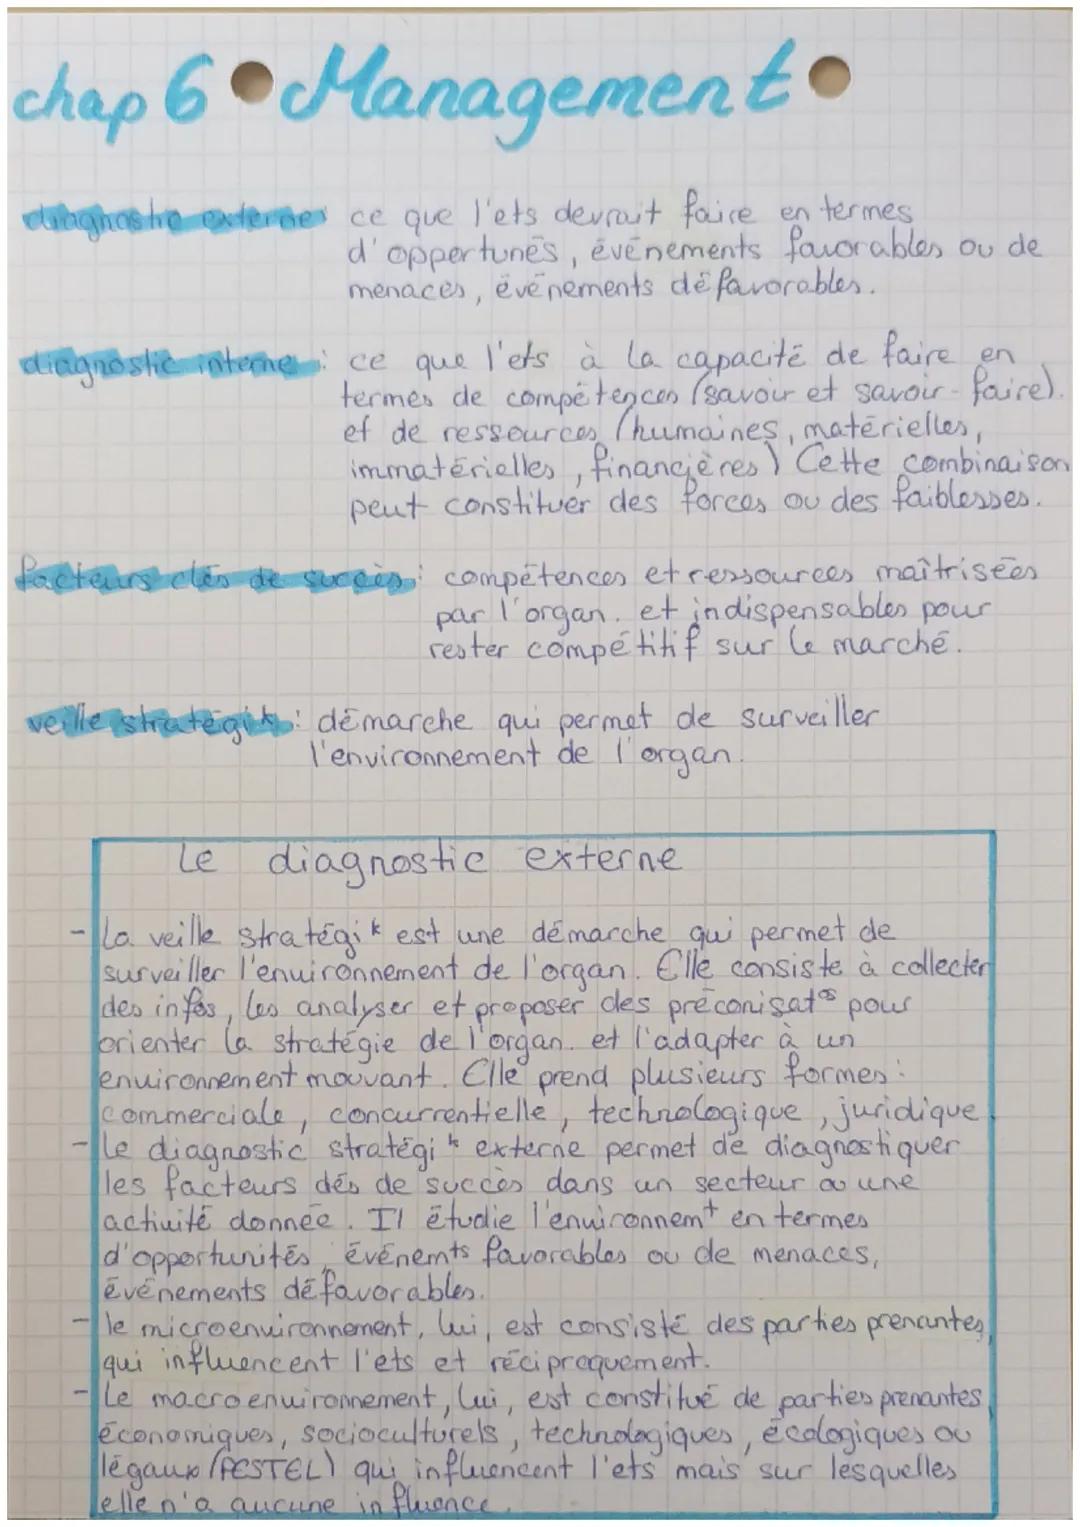 chap 6 Management
diagnostic externe: ce que l'ets devrait faire en termes
d'opportunés, événements favorables ou de
menaces, événements défavorables.
diagnostic interne: ce que l'ets à la capacité de faire en
termes de compétences (savoir et savoir-faire).
et de ressources (humaines, matérielles,
immatérielles, financières) Cette combinaison
peut constituer des forces ou des faiblesses.
facteurs clés de succès: compétences et ressources maîtrisées
par l'organ. et indispensables pour
rester compétitif sur le marché.
veille stratégik: démarche qui permet de surveiller
l'environnement de l'organ.
Le diagnostic externe
- La veille stratégik est une démarche qui permet de
surveiller l'environnement de l'organ. Elle consiste à collecter
des infos, les analyser et proposer des préconisatos pour
orienter la stratégie de l'organ. et l'adapter à un
environnement mouvant. Elle prend plusieurs formes:
commerciale, concurrentielle, technologique, juridique.
- Le diagnostic stratégik externe permet de diagnostiquer
les facteurs clés de succès dans un secteur ou une
activité donnée. Il étudie l'environnemt en termes
d'opportunités, événemts favorables ou de menaces,
événements défavorables.
- le microenvironnement, lui, est consisté des parties prenantes,
qui influencent l'ets et réciproquement.
- Le macroenvironnement, lui, est constitué de parties prenantes,
économiques, socioculturels, technologiques, écologiques ou
légaux (PESTEL) qui influencent l'ets mais sur lesquelles
elle n'a aucune influence.